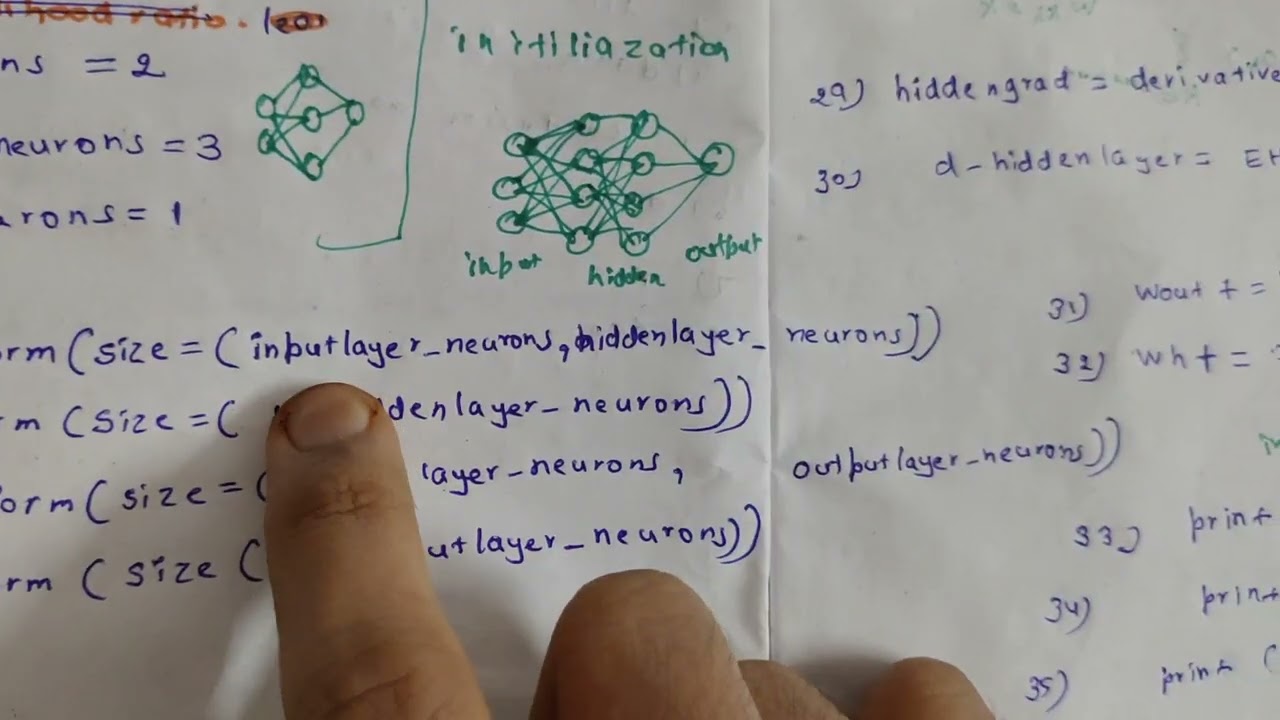 hood ratio.
ns = 2
neurons = 3
urons = 1
initiliazation
input hidden output
orm (size = (inputlayer_neurons, hiddenlayer_ neurons))
m (size = ( denlayer_neurons))
orm (size = ( layer_neurons, outputlayer_neurons))
rm ( size ( utlayer_neurons))
29) hiddengrad = derivative
30) d-hiddenlayer = EH
31) wout + =
32) wh + =
33) print
34) print
35) print (